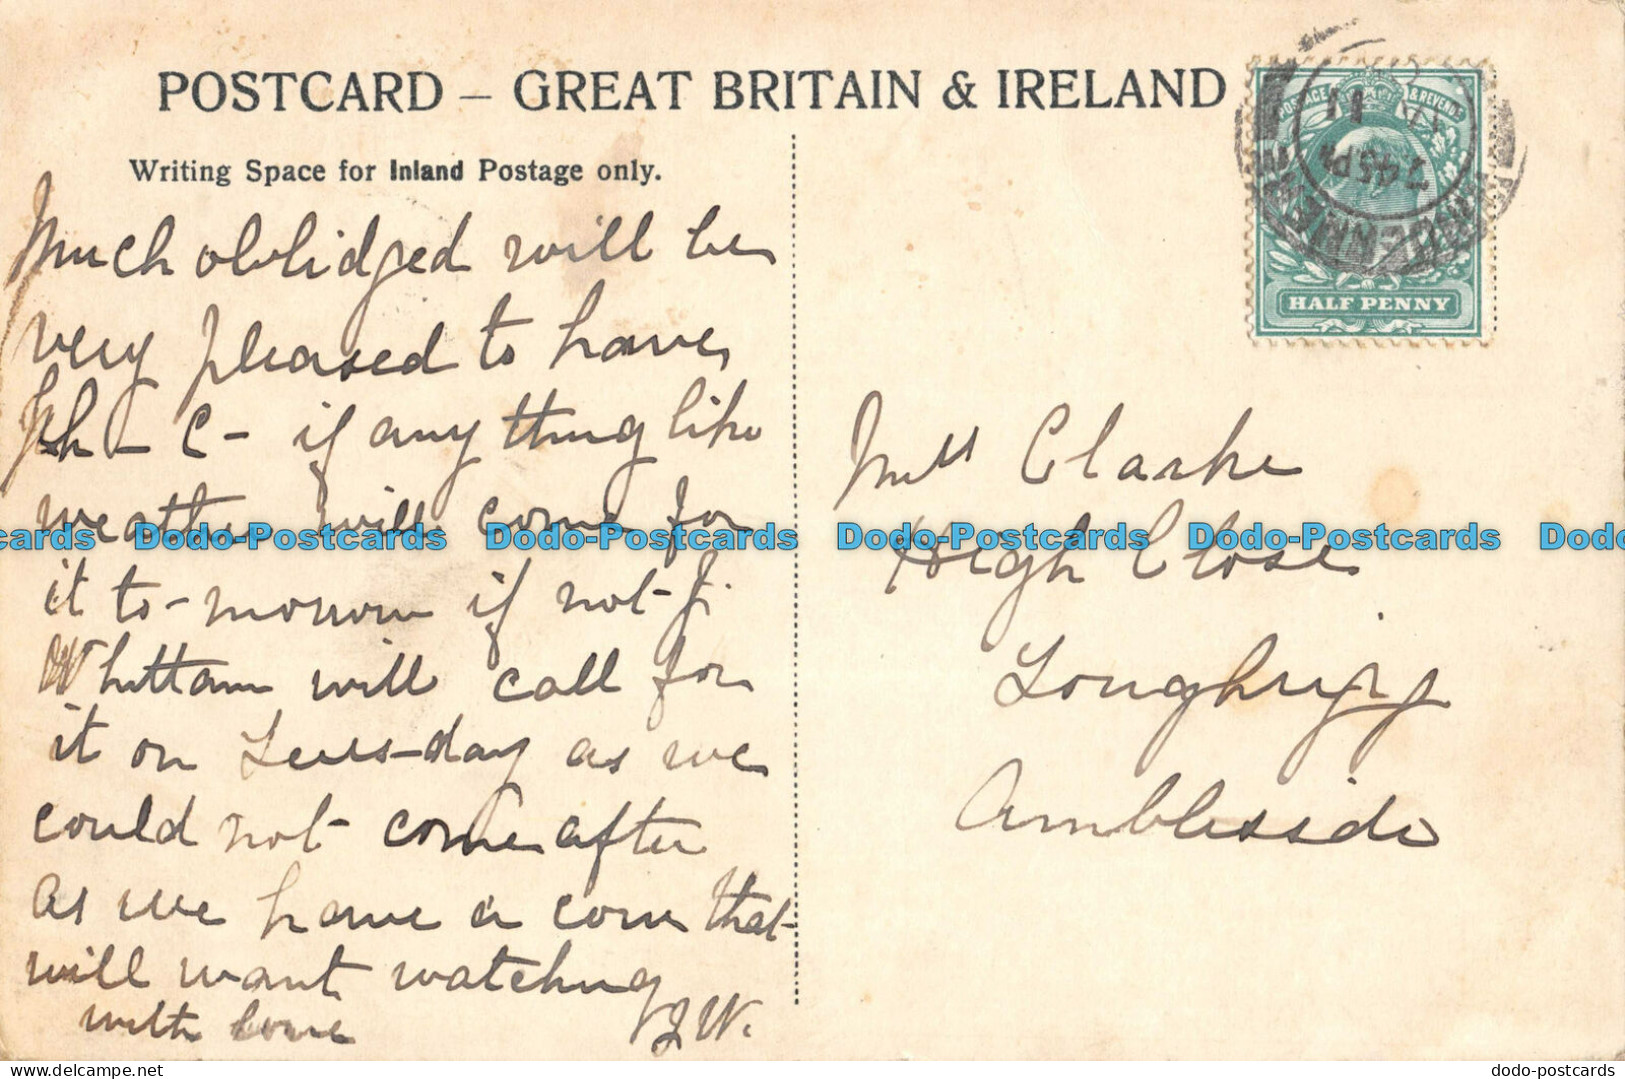 POSTCARD – GREAT BRITAIN & IRELAND
Writing Space for Inland Postage only.
Much oblidged will be
very pleased to have
Ph - C - if any thing like
weather will come for
it to-morrow if not J.
Whittam will call for
it on Teus-day as we
could not come after
as we have a cow that
will want watching
with love J W.
POSTAGE & REVENUE
7.45 PM
11
HALF PENNY
Mrs Clarke
High Close
Loughrigg
Ambleside
Dodo-Postcards Dodo-Postcards Dodo-Postcards Dodo-Postcards
delcampe.net
dodo-postcards